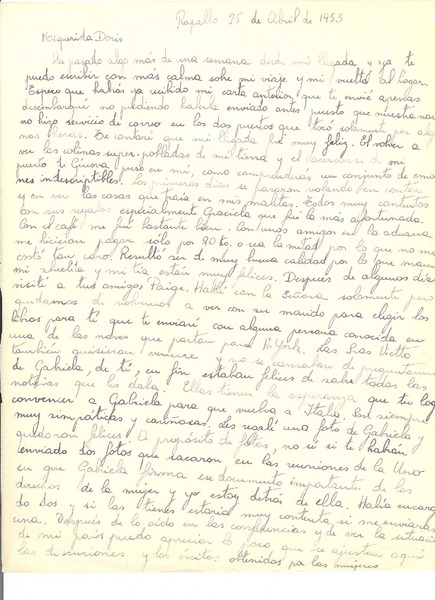 Rapallo 25 de Abril de 1953
Mi querida Doris
Ha pasado algo más de una semana desde mi llegada y ya te
puedo escribir con más calma sobre mi viaje y mi vuelta al hogar.
Espero que habrás ya recibido mi carta anterior que te envié apenas
desembarqué no pudiendo haberla enviado antes puesto que nuestra nave
no hizo servicio de correo en los dos puertos que tocó solamente por algu
nas horas. Te contaré que mi llegada fué muy feliz. El volver a
ver las colinas super-pobladas de mi tierra y el acercarse de mi
puerto de Génova puso en mí, como comprenderás un conjunto de emocio
nes indescriptibles. Los primeros días se pasaron volando en contar
y en ver las cosas que traía en mis maletas. Todos muy contentos
con sus regalos especialmente Graciela que fué la más afortunada.
Con el café me fué bastante bien. Con unos amigos en la aduana
me hicieron pagar solo por 20 lb. o sea la mitad por lo que no me
costó tan caro. Resultó ser de muy buena calidad por lo que mamá
mi abuelita y mi tía están muy felices. Después de algunos días
visité a tus amigos Paige. Hablé con la Señora solamente pero
quedamos de volvernos a ver con su marido para elegir los
libros para tí que te enviaré con alguna persona conocida en
una de las naves que partan para N. York. Las Sras Vietta
también quisieron verme y no se cansaban de preguntarme
de Gabriela, de tí, en fin estaban felices de saber todas las
noticias que les daba. Ellas tienen la esperanza que tu logres
convencer a Gabriela para que vuelva a Italia. Son siempre
muy simpáticas y cariñosas, les regalé una foto de Gabriela y
quedaron felices. A propósito de fotos, no sé si te habrán
enviado dos fotos que sacaron en las reuniones de la Uno
en que Gabriela firma un documento importante de los
derechos de la mujer y yo estoy detrás de ella. Había encarga
do dos y si las tienes estaría muy contenta si me enviaras
una. Después de lo oído en las conferencias y de ver la situación
de mi país puedo apreciar lo poco que se ajustan aquí
las discusiones y los éxitos obtenidos por las mujeres